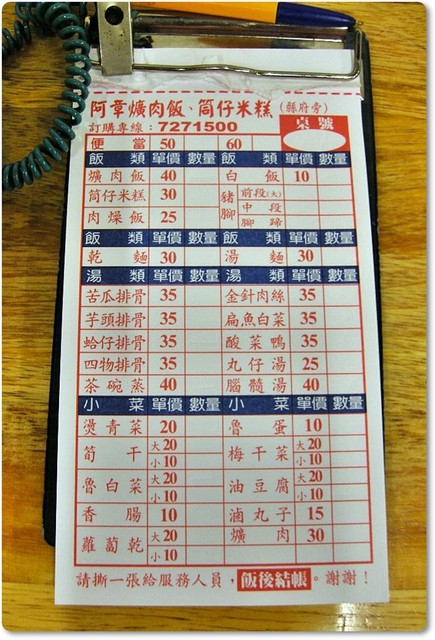 阿章爌肉飯、筒仔米糕(縣府旁)
訂購專線：7271500 桌號
便當 50 60
飯類 單價 數量 飯類 單價 數量
爌肉飯 40 白飯 10
筒仔米糕 30 豬腳 前段(大) 中段 腳蹄
肉燥飯 25
飯類 單價 數量 飯類 單價 數量
乾麵 30 湯麵 30
湯類 單價 數量 湯類 單價 數量
苦瓜排骨 35 金針肉絲 35
芋頭排骨 35 扁魚白菜 35
蛤仔排骨 35 酸菜鴨 35
四物排骨 35 丸仔湯 25
茶碗蒸 40 腦髓湯 40
小菜 單價 數量 小菜 單價 數量
燙青菜 20 魯蛋 10
筍干 大20 小10 梅干菜 大20 小10
魯白菜 大20 小10 油豆腐 大20 小10
香腸 10 滷丸子 15
蘿蔔乾 大20 小10 爌肉 30
請撕一張給服務人員，飯後結帳。謝謝！